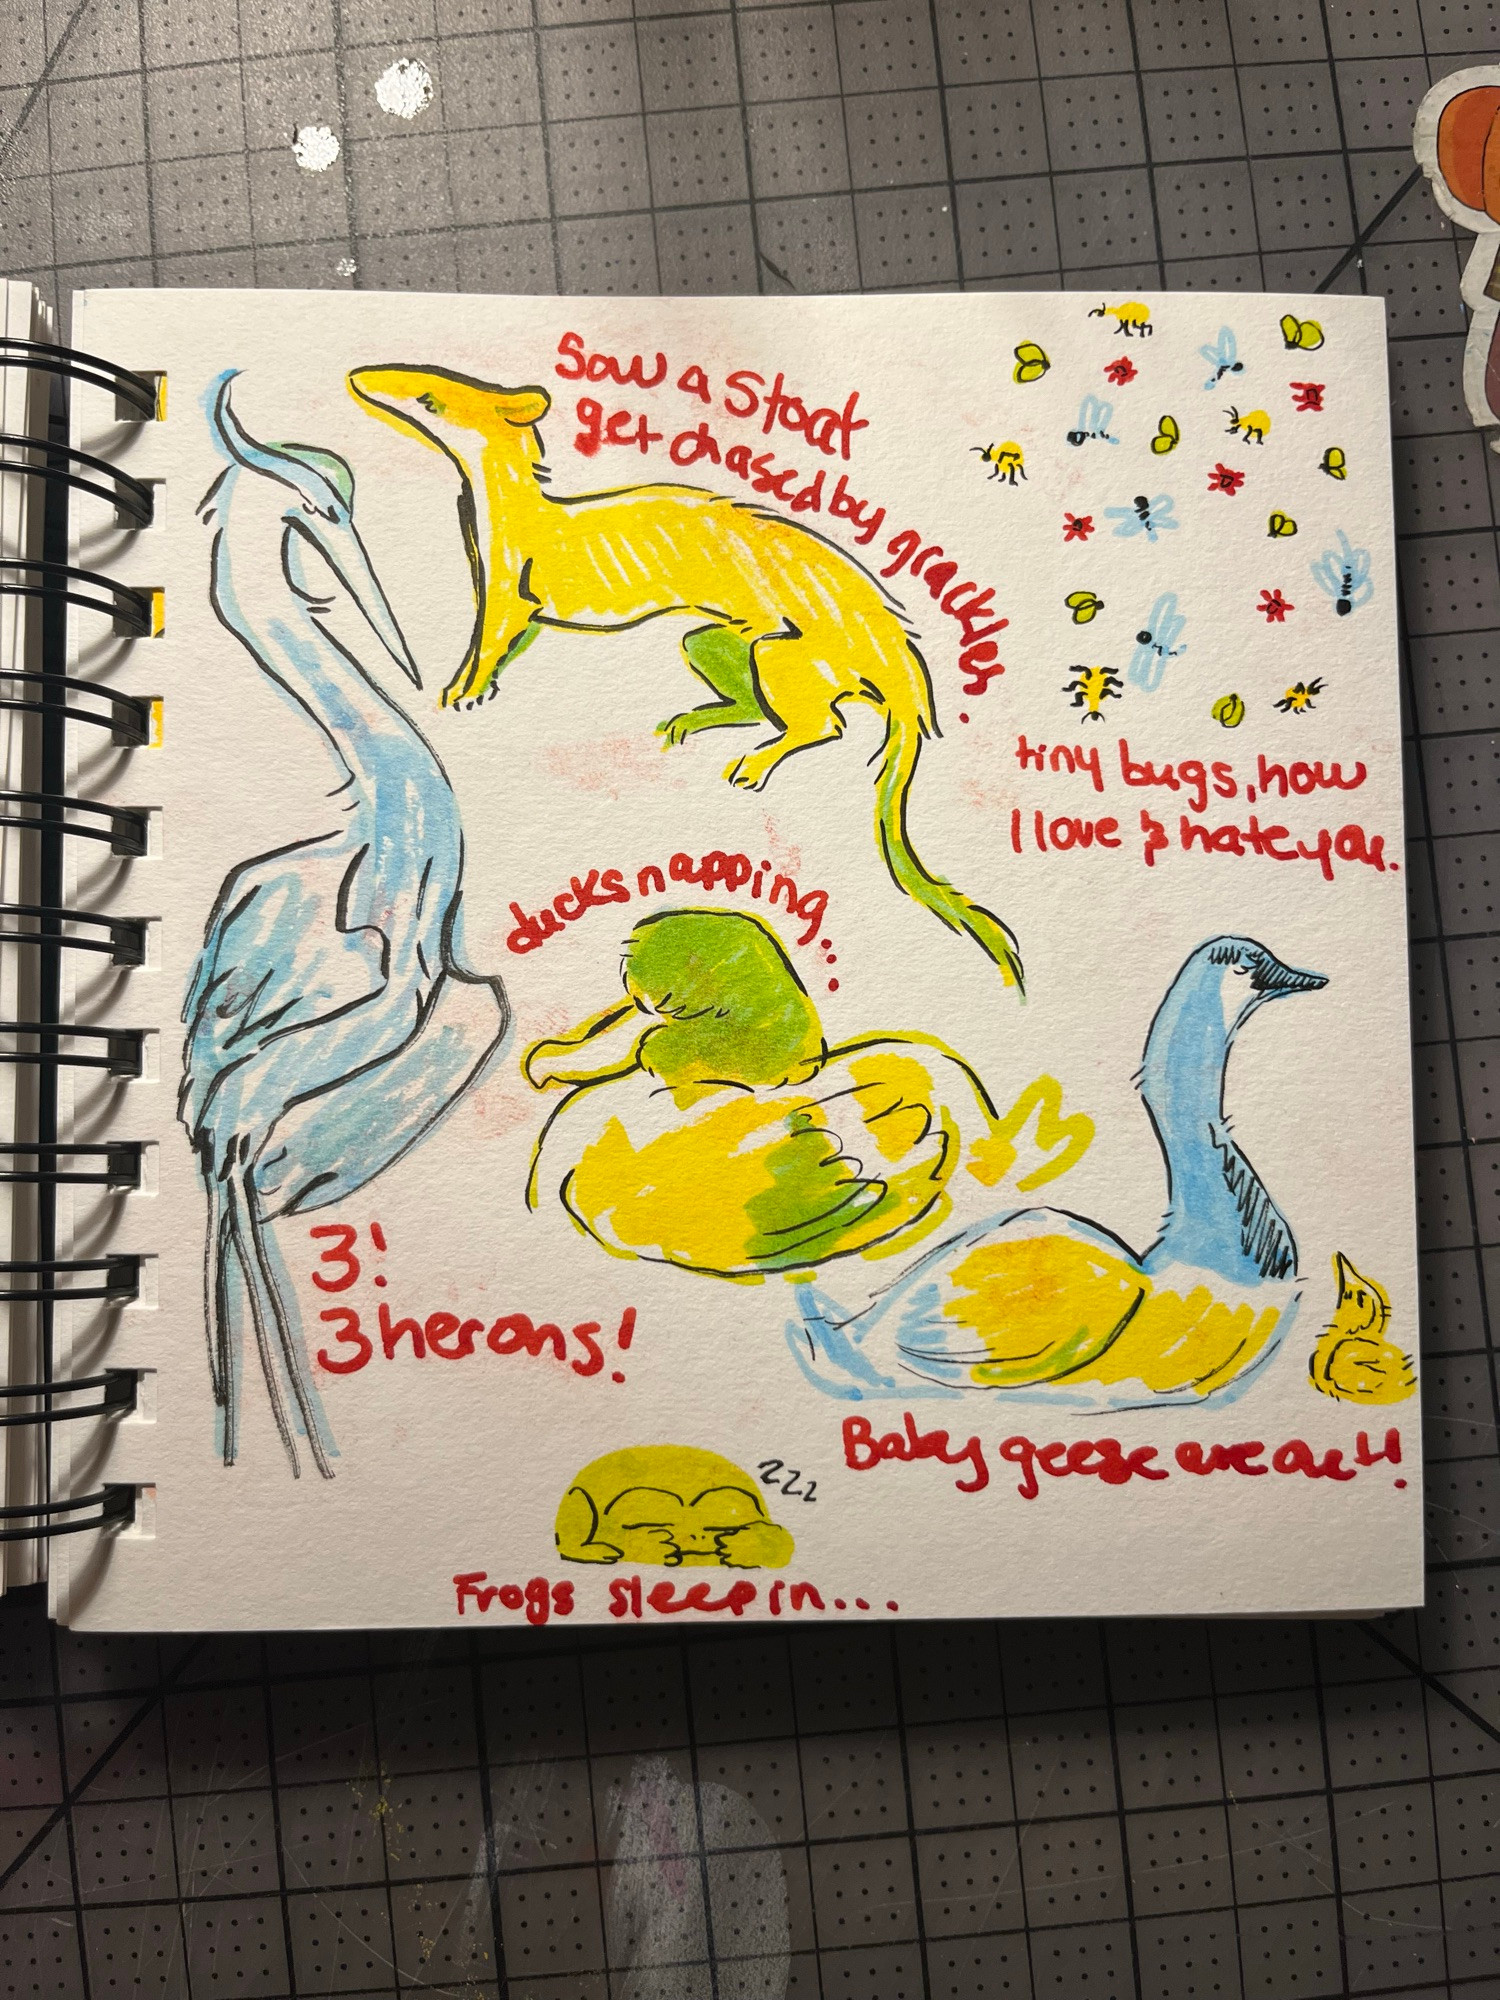 Saw a Stoat
get chased by grackles.
tiny bugs, how
I love & hate you.
ducks napping...
3!
3 herons!
Baby geese are out!
zzz
Frogs sleep in...